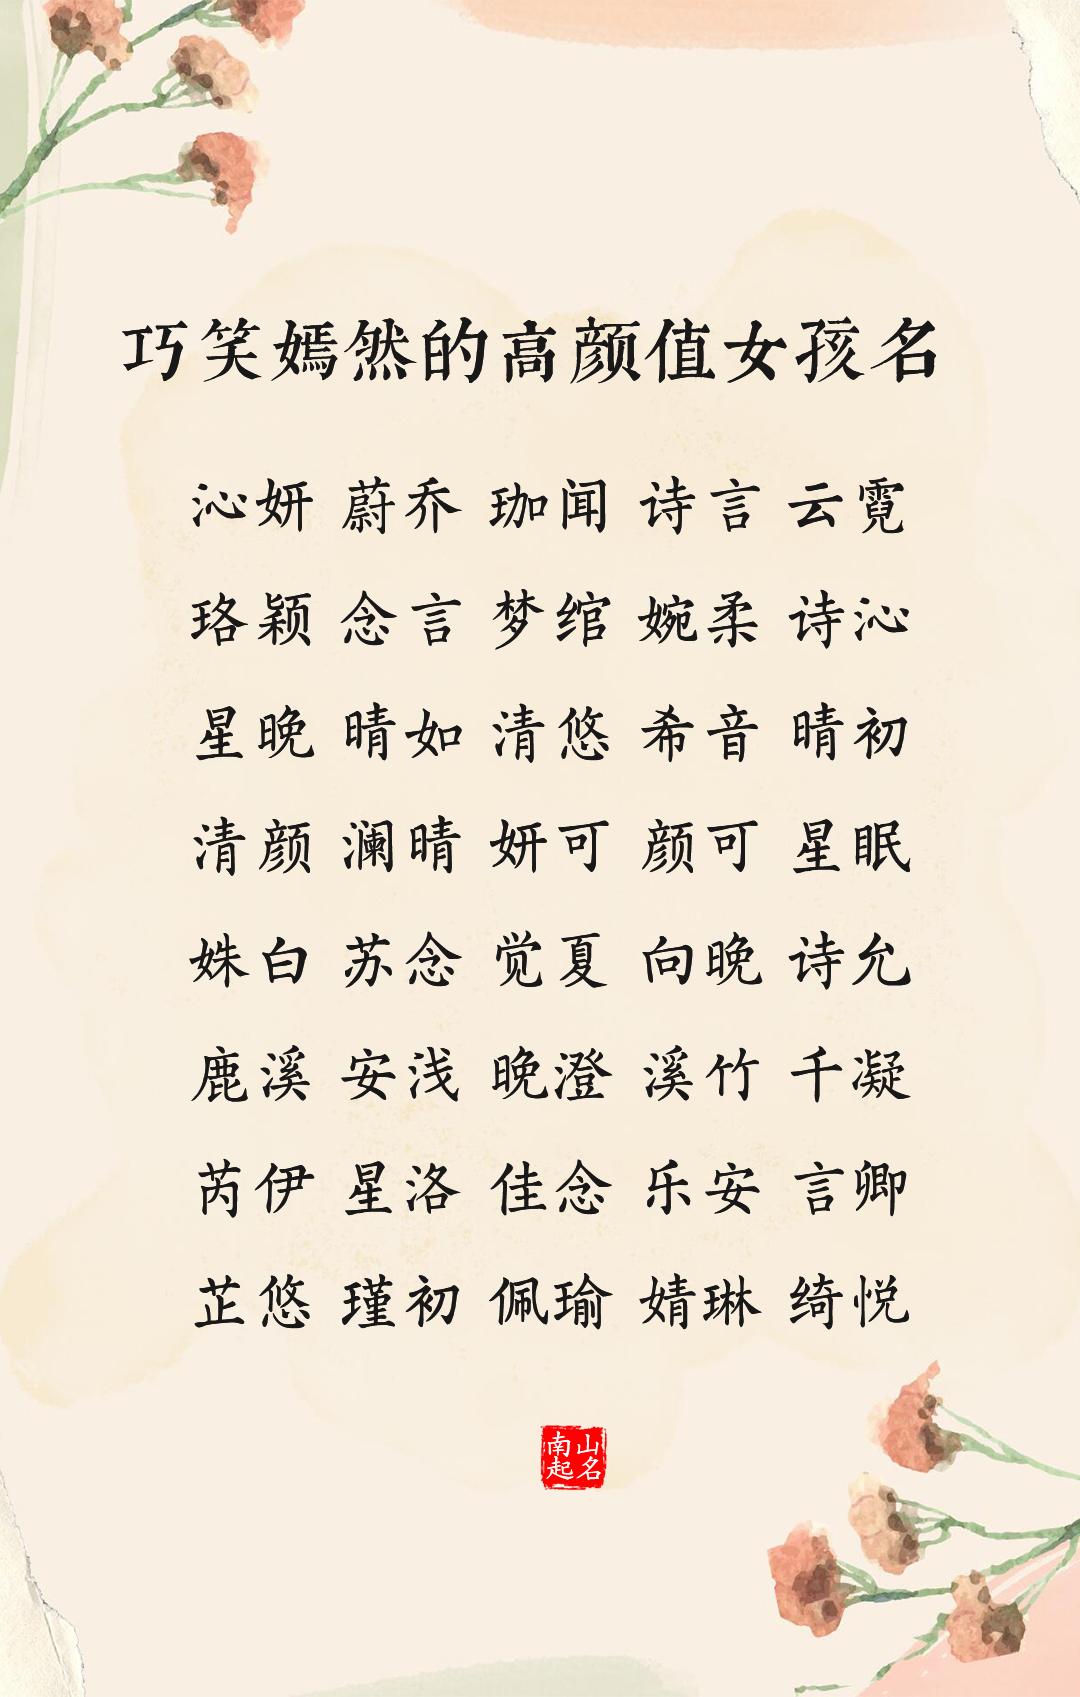 巧笑嫣然的高颜值女孩名
沁妍 蔚乔 珈闻 诗言 云霓
珞颖 念言 梦绾 婉柔 诗沁
星晚 晴如 清悠 希音 晴初
清颜 澜晴 妍可 颜可 星眠
姝白 苏念 觉夏 向晚 诗允
鹿溪 安浅 晚澄 溪竹 千凝
芮伊 星洛 佳念 乐安 言卿
芷悠 瑾初 佩瑜 婧琳 绮悦
南山
起名